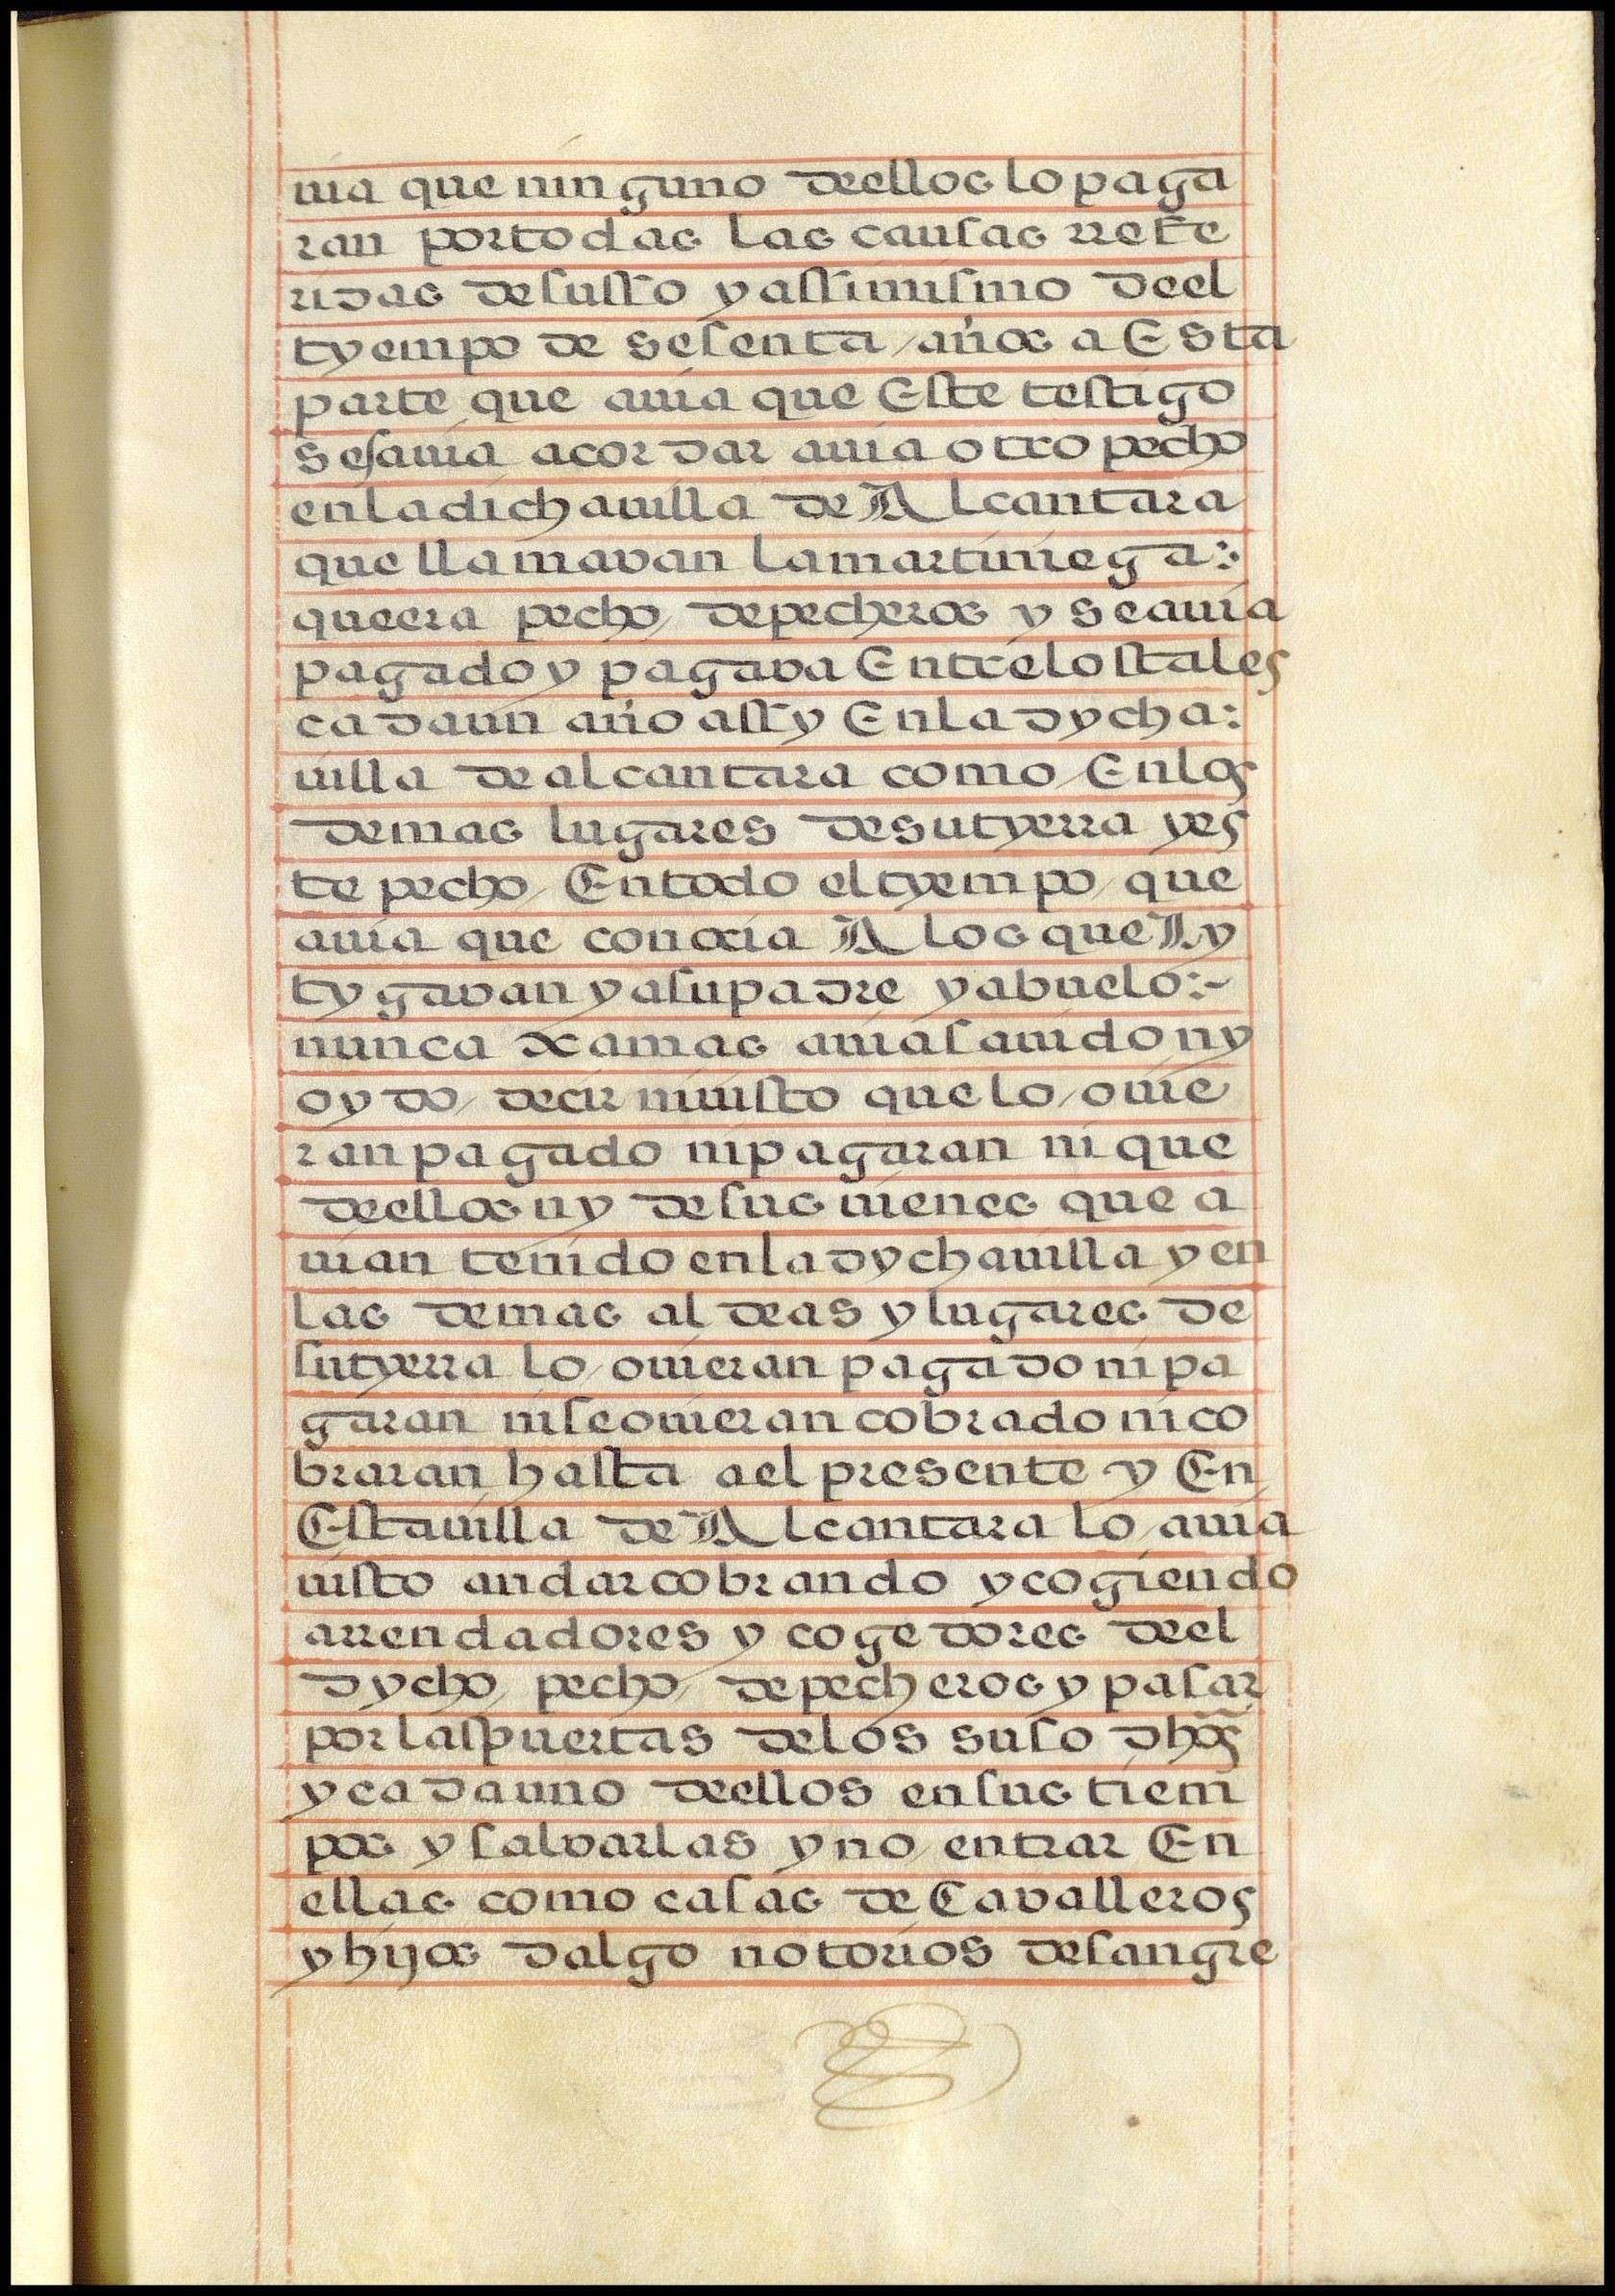 uia que ninguno deellos lo paga
ran por todas las causas rrefe
ridas desusso y assimismo deel
tyempo de sesenta años a Esta
parte que auia que Este testigo
se sauia acordar auia otro pecho
en la dicha uilla de Alcantara
que llamavan la martiniega:
que era pecho de pecheros y se auia
pagado y pagava Entre los tales
cada un año assy En la dycha:
uilla de alcantara como En los
demas lugares de su tyerra y es
te pecho En todo el tyempo que
auia que conocia A los que Ly
tygavan y a su padre y abuelo:~
nunca xamas auia sauido ny
oydo decir ni uisto que lo ouie
ran pagado ni pagaran ni que
deellos ny de sus uienes que a
uian tenido en la dycha uilla y en
las demas aldeas y lugares de
su tyerra lo ouieran pagado ni pa
garan ni se ouieran cobrado ni co
braran hasta a el presente y En
Esta uilla de Alcantara lo auia
uisto andar cobrando y cogiendo
arrendadores y cogedores deel
dycho pecho de pecheros y pasar
por las puertas de los suso dhos
y cada uno deellos en sus tiem
pos y salvarlas y no entrar En
ellas como casas de Cavalleros
y hijos dalgo notorios de sangre